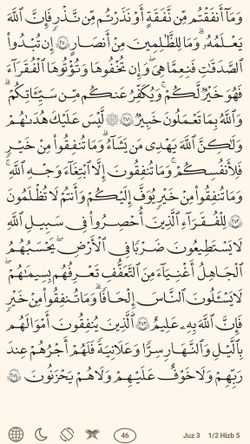 وَمَآ أَنفَقْتُم مِّن نَّفَقَةٍ أَوْ نَذَرْتُم مِّن نَّذْرٍ فَإِنَّ ٱللَّهَ
يَعْلَمُهُۥ ۗ وَمَا لِلظَّٰلِمِينَ مِنْ أَنصَارٍ ٢٧٠ إِن تُبْدُوا۟
ٱلصَّدَقَٰتِ فَنِعِمَّا هِىَ ۖ وَإِن تُخْفُوهَا وَتُؤْتُوهَا ٱلْفُقَرَآءَ
فَهُوَ خَيْرٌ لَّكُمْ ۚ وَيُكَفِّرُ عَنكُم مِّن سَيِّـَٔاتِكُمْ ۗ
وَٱللَّهُ بِمَا تَعْمَلُونَ خَبِيرٌ ٢٧١ لَّيْسَ عَلَيْكَ هُدَىٰهُمْ
وَلَٰكِنَّ ٱللَّهَ يَهْدِى مَن يَشَآءُ ۗ وَمَا تُنفِقُوا۟ مِنْ خَيْرٍ
فَلِأَنفُسِكُمْ ۚ وَمَا تُنفِقُونَ إِلَّا ٱبْتِغَآءَ وَجْهِ ٱللَّهِ ۚ
وَمَا تُنفِقُوا۟ مِنْ خَيْرٍ يُوَفَّ إِلَيْكُمْ وَأَنتُمْ لَا تُظْلَمُونَ
٢٧٢ لِلْفُقَرَآءِ ٱلَّذِينَ أُحْصِرُوا۟ فِى سَبِيلِ ٱللَّهِ
لَا يَسْتَطِيعُونَ ضَرْبًا فِى ٱلْأَرْضِ يَحْسَبُهُمُ
ٱلْجَاهِلُ أَغْنِيَآءَ مِنَ ٱلتَّعَفُّفِ تَعْرِفُهُم بِسِيمَٰهُمْ
لَا يَسْـَٔلُونَ ٱلنَّاسَ إِلْحَافًا ۗ وَمَا تُنفِقُوا۟ مِنْ خَيْرٍ
فَإِنَّ ٱللَّهَ بِهِۦ عَلِيمٌ ٢٧٣ ٱلَّذِينَ يُنفِقُونَ أَمْوَٰلَهُم
بِٱلَّيْلِ وَٱلنَّهَارِ سِرًّا وَعَلَانِيَةً فَلَهُمْ أَجْرُهُمْ عِندَ
رَبِّهِمْ وَلَا خَوْفٌ عَلَيْهِمْ وَلَا هُمْ يَحْزَنُونَ ٢٧٤
46 Juz 3 1/2 Hizb 5